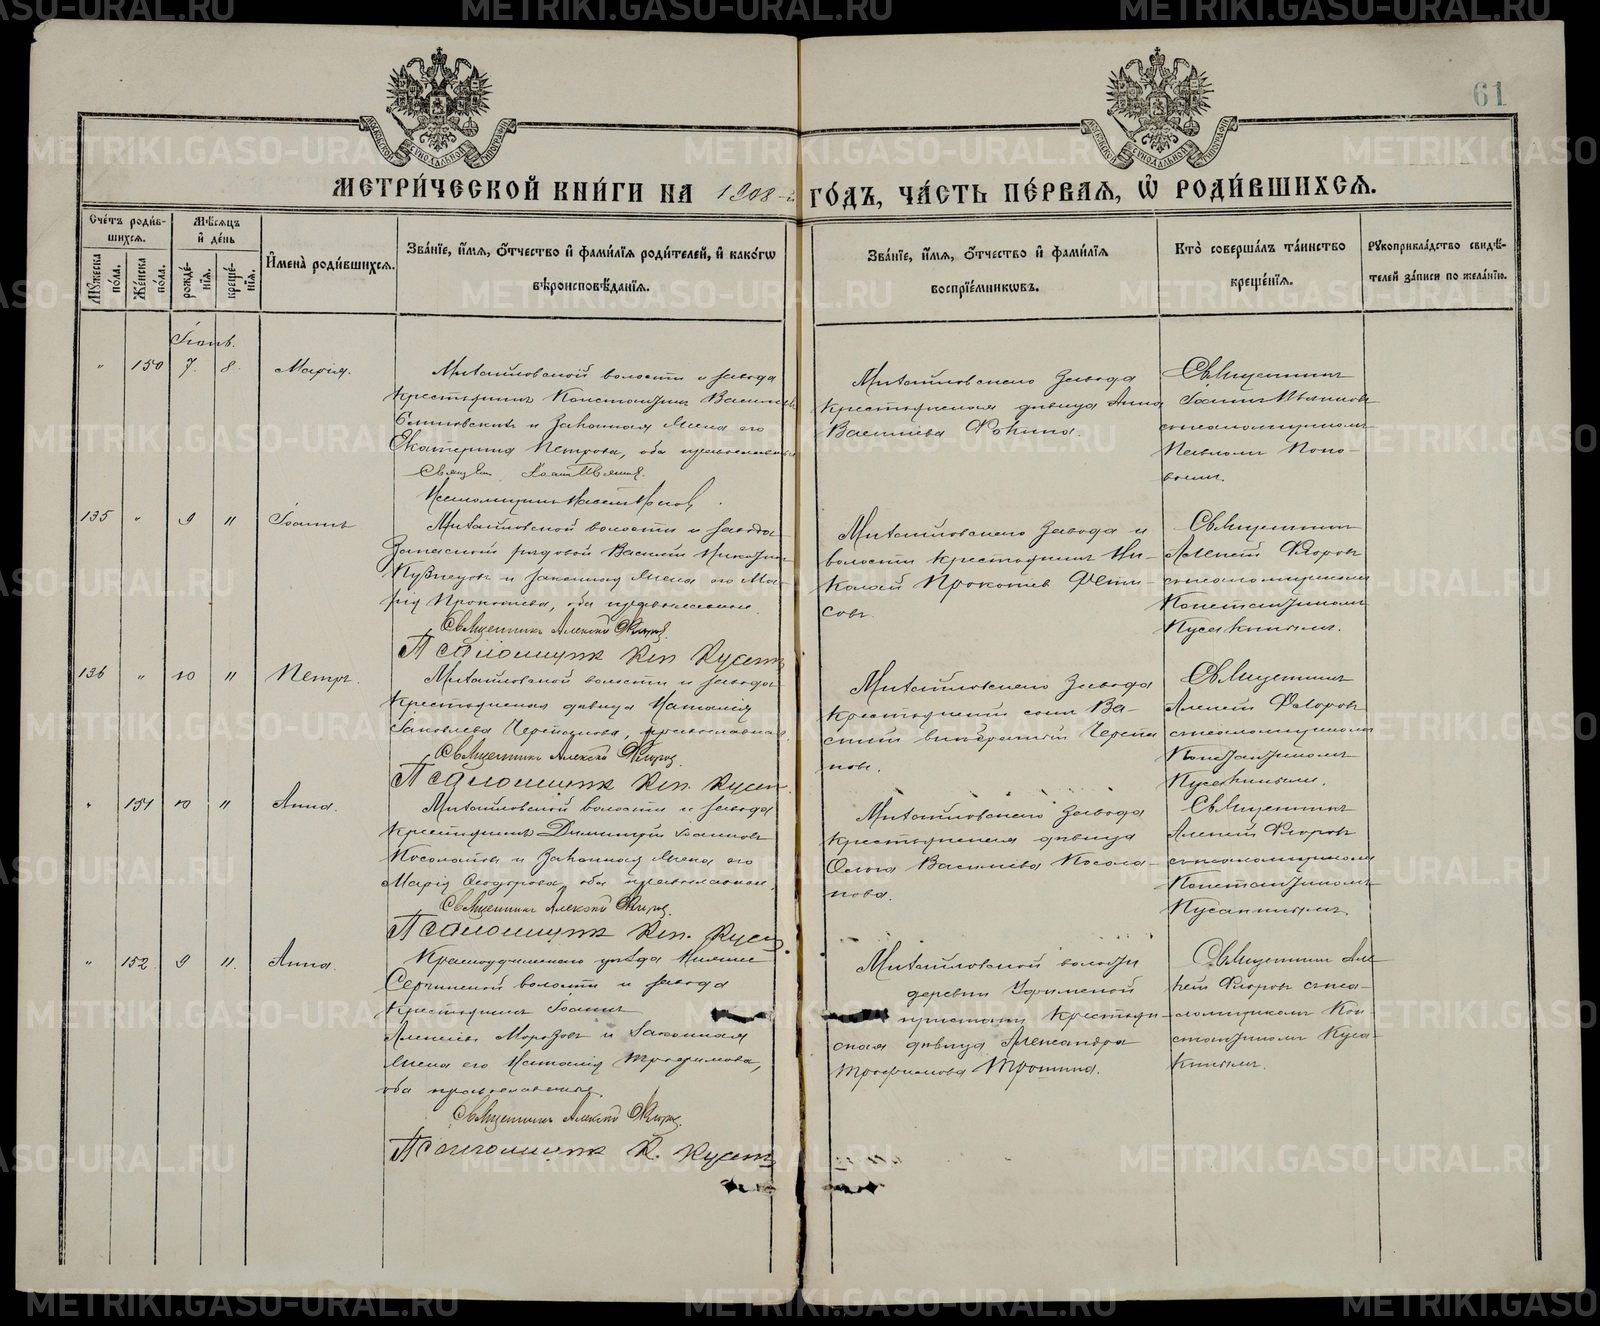 METRIKI.GASO-URAL.RU
61
МОСКОВСКОЙ СѴНОДАЛЬНОЙ ТИПОГРАФІИ
МЕТРИ́ЧЕСКОЙ КНИ́ГИ НА 1908-й ГО́ДЪ, ЧА́СТЬ ПЕ́РВАЯ, Ѡ҆ РОДИ́ВШИХСЯ.
Сче́тъ роди́вшихся.
Мѣ́сяцъ и҆ де́нь
Мꙋ́жеска по́ла.
Же́нска по́ла.
рожде́нїя.
креще́нїя.
И҆мена̀ роди́вшихся.
Зва́нїе, и҆́мя, ѻ҆́тчество и҆ фами́лїя роди́телей, и҆ како́гѡ
вѣроисповѣ́данїя.
Зва́нїе, и҆́мя, ѻ҆́тчество и҆ фами́лїя
воспрїе́мникѡвъ.
Кто̀ соверша́лъ та́инство
креще́нїя.
Рꙋкоприкла́дство свидѣ́телей за́писи по жела́нїю.
Іюнь.
" 150 7. 8. Марія.
Михайловской волости и завода
крестьянинъ Константинъ Васильевъ
и законная жена его
Екатерина Петрова, оба православные
Михайловскаго завода
крестьянская дѣвица Анна
Васильева
Священникъ
Іоаннъ
псаломщикомъ
Павломъ Попо-
вымъ.
135 " 9 11 Іоаннъ
Михайловской волости и завода
Запасной рядовой Василій
Кузнецовъ и законная жена его Ма-
рія Прокопьева, оба православные.
Священникъ Алексій Флоров
Псаломщикъ Кон. Кусакин
Михайловскаго завода и
волости крестьянинъ Ни-
колай Прокопьевъ Фети-
совъ.
Священникъ
Алексій Флоровъ
съ псаломщикомъ
Константиномъ
Кусакинымъ.
136 " 10 11 Петръ.
Михайловской волости и завода
крестьянская дѣвица Наталія
Яковлева Черепанова, православная.
Священникъ Алексій Флоров
Псаломщикъ Кон. Кусакин
Михайловскаго завода
крестьянскій сынъ Ва-
силій Черепа-
новъ.
Священникъ
Алексій Флоровъ
съ псаломщикомъ
Константиномъ
Кусакинымъ.
" 151 10 11 Анна.
Михайловской волости и завода
крестьянинъ Димитрій Іоанновъ
Косолаповъ и законная жена его
Марія Ѳеодорова, оба православные.
Священникъ Алексій Флоров
Псаломщикъ Кон. Кусакин
Михайловскаго завода
крестьянская дѣвица
Ольга Васильева Косола-
пова.
Священникъ
Алексій Флоровъ
съ псаломщикомъ
Константиномъ
Кусакинымъ.
" 152 9 11. Анна.
Красноуфимскаго уѣзда Нижне
Сергинской волости и завода
крестьянинъ Іоаннъ
Алексѣевъ Морозовъ и законная
жена его Наталія Трофимова,
оба православные.
Священникъ Алексій Флоров
Псаломщикъ К. Кусакин
Михайловской волости
деревни Уфимской
пристани крестьян-
ская дѣвица Александра
Трофимова Трошина.
Священникъ Але-
ксій Флоровъ съ пса-
ломщикомъ Кон-
стантиномъ Куса-
кинымъ.